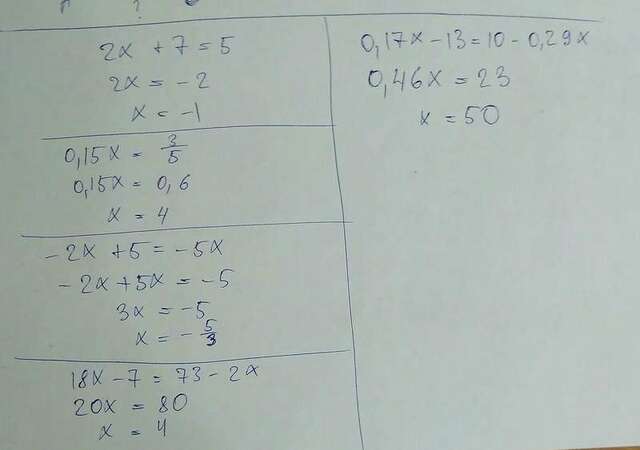 2x + 7 = 5
2x = -2
x = -1
0,15x = 3/5
0,15x = 0,6
x = 4
-2x + 5 = -5x
-2x + 5x = -5
3x = -5
x = -5/3
18x - 7 = 73 - 2x
20x = 80
x = 4
0,17x - 13 = 10 - 0,29x
0,46x = 23
x = 50